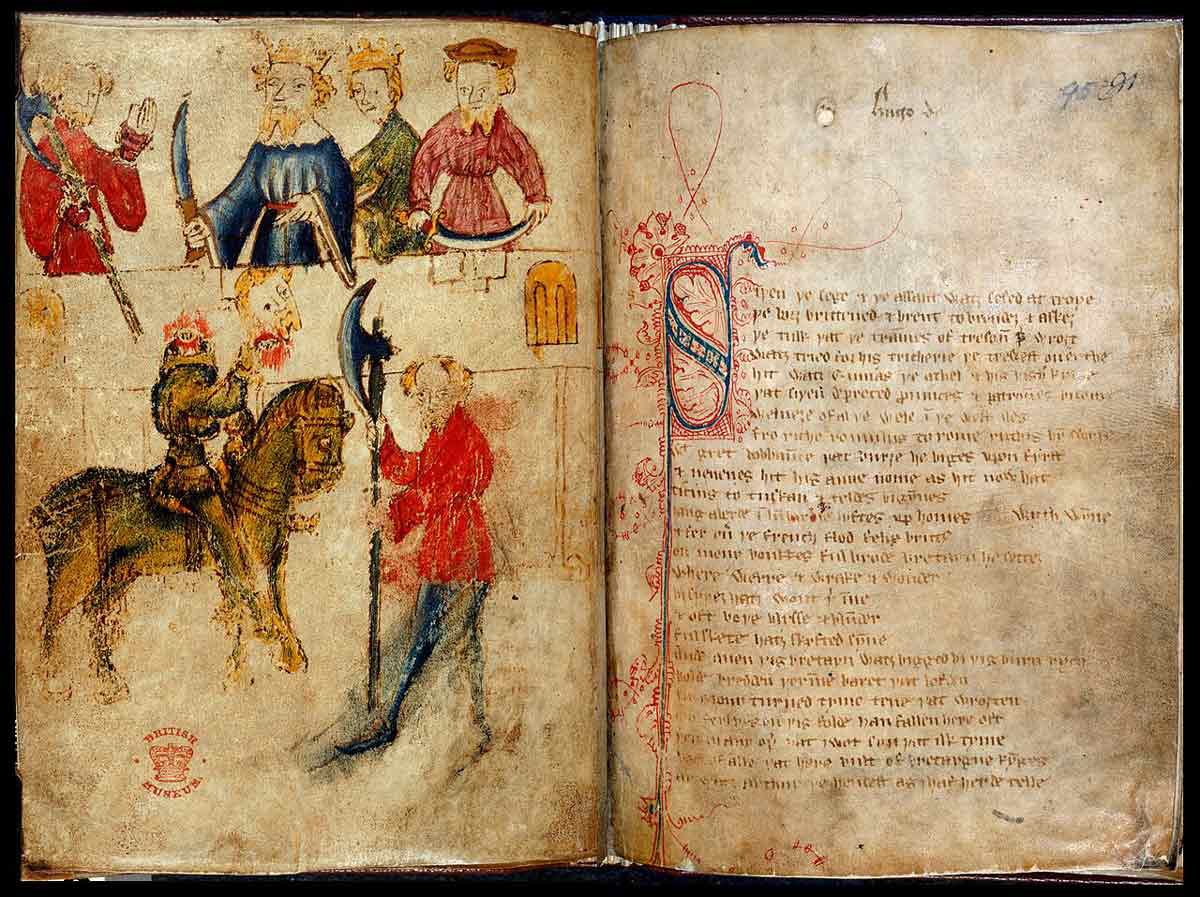 95 91
Hugo de
Siþen þe sege & þe assaut watz sesed at troye
þe borȝ brittened & brent to brondez & askez
þe tulk þat þe trammes of tresoun þ wroȝt
watz tried for his tricherie þe trewest on erthe
hit watz Ennias þe athel & his highe kynde
þat siþen depreced prouinces & patrounes bicome
welneȝe of al þe wele in þe west iles
fro riche romulus to rome ricchis hym
gret bobbaunce þat burȝe he biges vpon fyrst
& neuenes hit his aune nome as hit now hat
ticius to tuskan & teldes bigynnes
langaberde in lumbardie lyftes vp homes wyth wynne
& fer ou þe french flod felix brutus
on mony bonkkes ful brode bretayn he settez
where werre & wrake & wonder
bi syþez hatz wont þ inne
& oft boþe blysse & blunder
ful skete hatz skyfted synne
Ande quen þis bretayn watz bigged bi þis burn rych
bolde bredden þerinne baret þat lofden
in mony turned tyme tene þat wroȝten
mo ferlyes on þis folde han fallen here oft
þen in any oþ þat I wot syn þat ilk tyme
bot of alle þat here bult of bretaygne kynges
ay watz arthur þe hendest as I haf herde telle
BRITISH MUSEUM